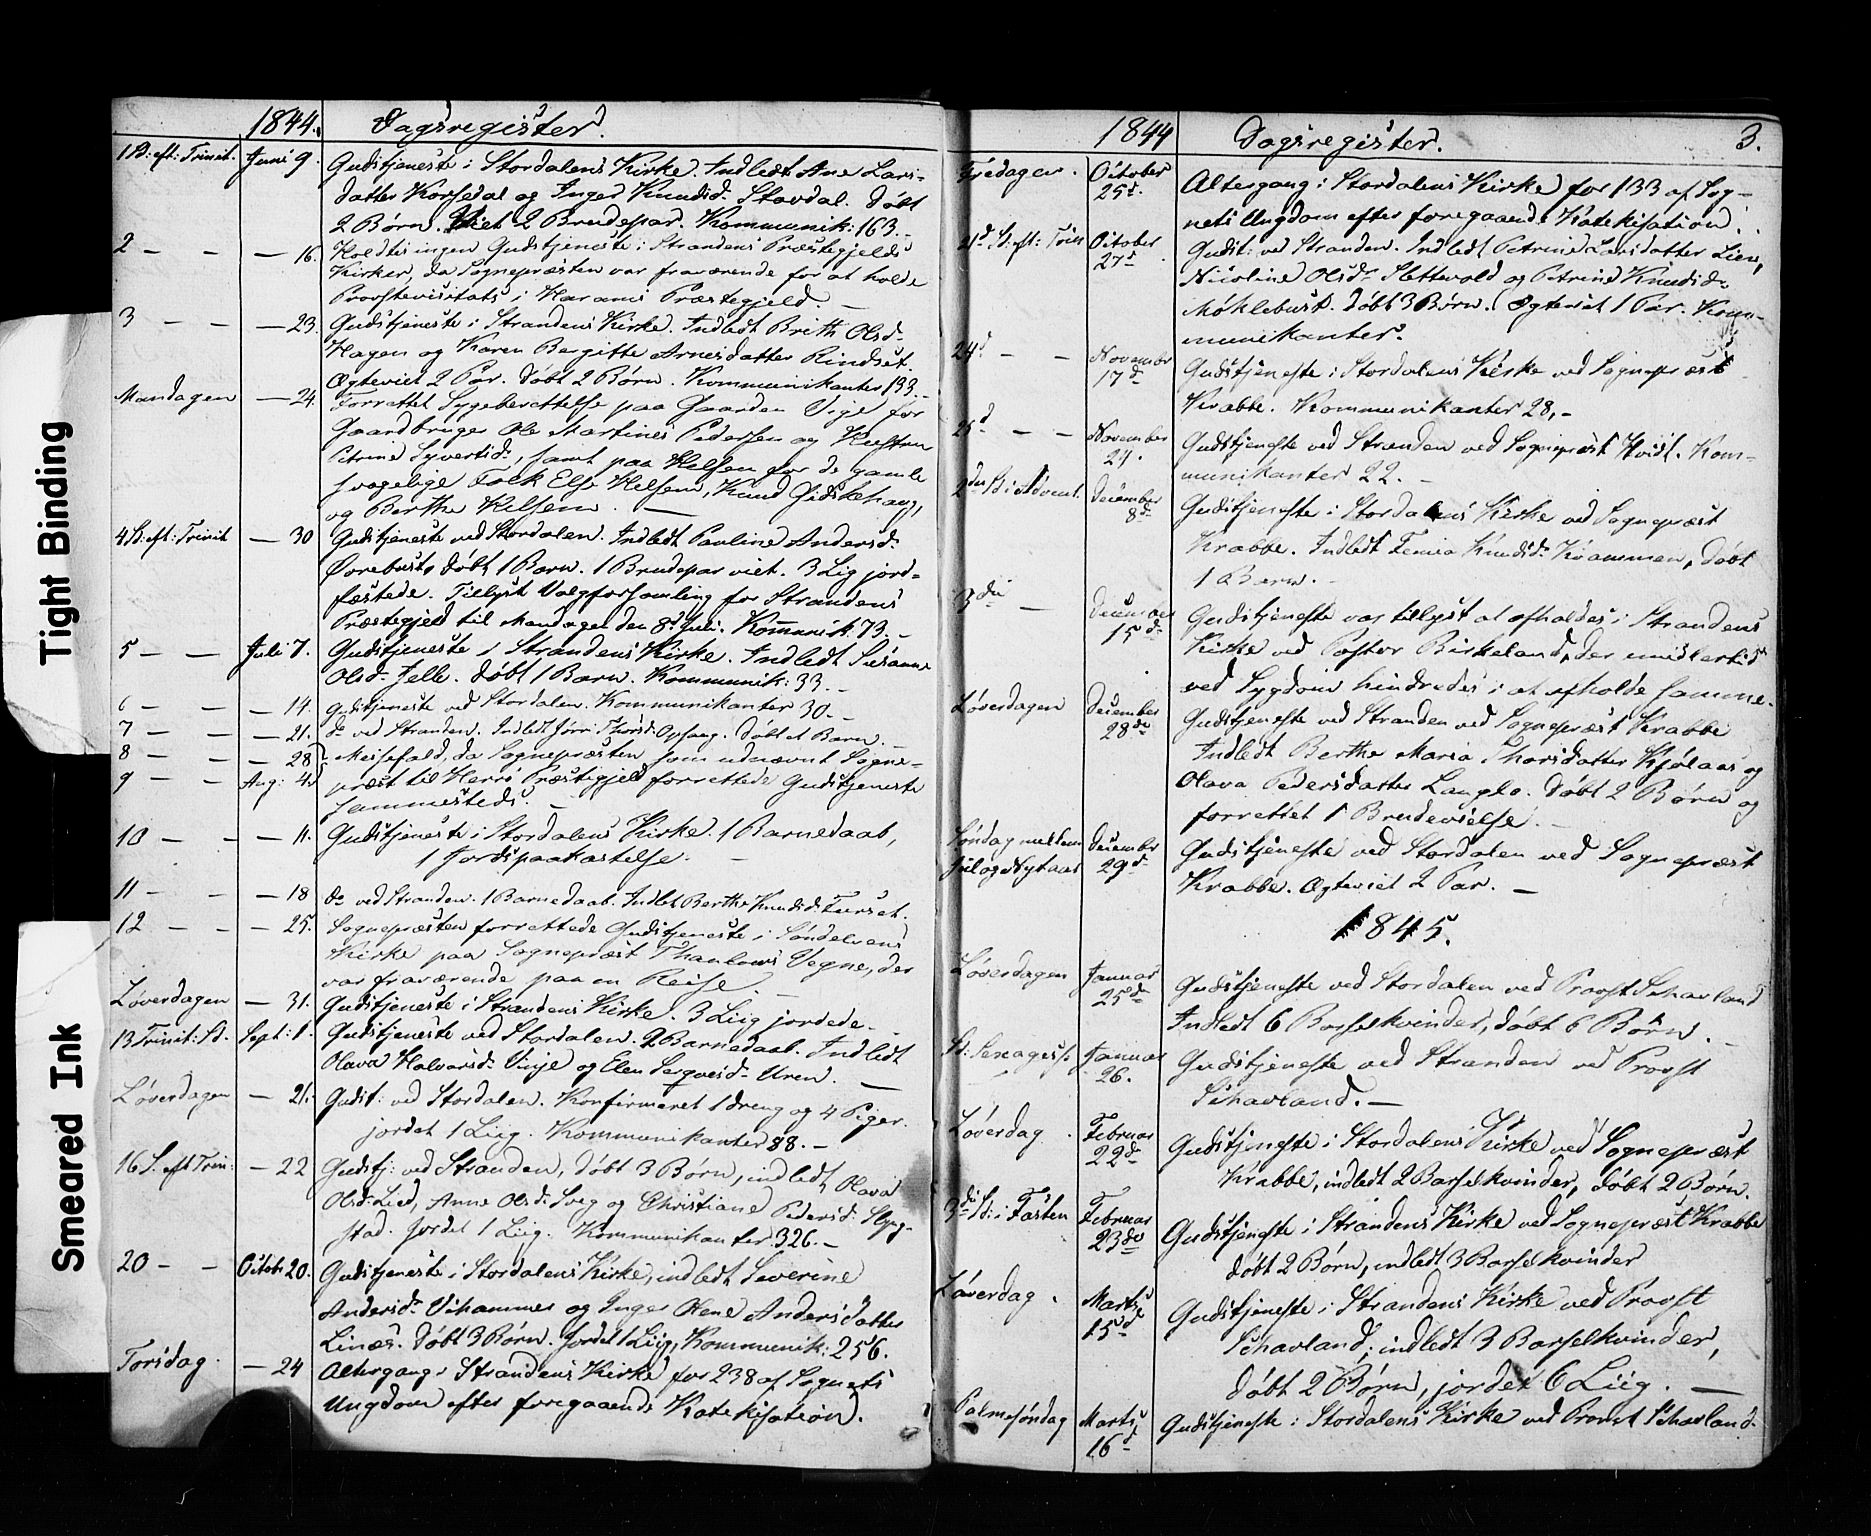 Tight Binding
Smeared Ink
1844. Dagsregister.
1 S: eft: Trinit. Juni 9. Gudstjeneste i Stordalens Kirke. Indledt Ane Lars-
datter Korsedal og Inger Knudsd. Stavdal. Døbt
2 Børn. Viet 2 Brudepar. Kommunik: 163.-
2 — — — 16. Holdtes ingen Gudstjeneste i Strandens Præstegjelds
Kirker, da Sognepræsten var fraværende for at holde
Provstevisitats i Harams Præstegjeld. —
3 — — — 23. Gudstjeneste i Strandens Kirke. Indledt Brith Olsd.
Hagen og Karen Bergitte Arnesdatter Rindset.
Ægteviet 2 Par. Døbt 2 Børn. Kommunikanter 133.-
Mandagen — 24. Forrettet Sygeberettelse paa Gaarden Vige for
Gaardbruger Ole Martinus Pedersen og Kustru
Petrine Syvertsd., samt paa Helsem for de gamle
svagelige Folk Else Helsem, Knud Gidskehaug,
og Berthe Helsem. —
4 S: eft: Trinit — 30 Gudstjeneste ved Stordalen. Indledt Pauline Andersd.
Ørebust, døbt 1 Barn. 1 Brudepar viet. 3 Lig jord-
fæstede. Tillyst Valgforsamling for Strandens
Præstegjeld til Mandagen den 8d Juli. Kommunik. 73.-
5 — — Juli 7. Gudstjeneste i Strandens Kirke. Indledt Susanne
Olsd. Jelle. Døbt 1 Barn. Kommunik: 33.-
6 — — — 14. Gudstjeneste ved Stordalen. Kommunikanter 30.-
7 — — — 21. do ved Stranden. Indledt Jørn: Thorsd. Opsaug. Døbt et Barn. —
8 — — — 28 Messefald, da Sognepræsten som udnævnt Sogne-
9 — — Aug: 4. præst til Herrø Præstegjeld forrettede Gudstjeneste
sammesteds. —
10 — — — 11. Gudstjeneste i Stordalens Kirke. 1 Barnedaab,
1 Jordspaakastelse. —
11 — — — 18 do ved Stranden. 1 Barnedaab. Indledt Berthe Knudsd. Furset.
12 — — — 25. Sognepræsten forrettede Gudstjeneste i Søndelvens
Kirke paa Sognepræst Thaulows Vegne, der
var fraværende paa en Reise. —
Løverdagen — 31. Gudstjeneste i Strandens Kirke. 3 Liig jordede. -
13 Trinit: S. Sept: 1. Gudstjeneste ved Stordalen. 2 Barnedaab. Indledt
Olava Halvorsd. Vinje og Elen Sergvesd. Uren. —
Løverdagen — 21. Gudst: ved Stordalen. Konfirmeret 1 dreng og 4 Piger.
jordet 1 Liig. Kommunikanter 88.-
16 S. eft Trin: — 22 Gudstj: ved Stranden, døbt 3 Børn, indledt, Olava
Olsd. Lied, Anne Olsd. Sveg og Christiane Pedersd. Slyng-
stad. Jordet 1 Liig. Kommunikanter 326.-
20 — — Octob: 20. Gudstjeneste i Stordalens Kirke, indledt Severine
Andersd. Vihammer og Inger Olene Andersdatter
Linæs. Døbt 3 Børn. Jordet 1 Liig, Kommunik: 256.
Torsdag. — 24 Altergang i Strandens Kirke for 238 af Sognets
Ungdom efter foregaaende Katekisation.
1844 Dagsregister. 3.
Fredagen. October 25d. Altergang i Stordalens Kirke for 133 af Sog-
nets Ungdom efter foregaaende Katekisation.
21d S. eft: Trin October 27d Gudst: ved Stranden. Indledt Petrine Larsdatter Lien,
Nicoline Olsd. Slettevold og Petrine Knudsd.
Møklebust. Døbt 3 Børn. Ægteviet 1 Par. Kom-
munikanter.
24d — — November 17d Gudstjeneste i Stordalens Kirke ved Sognepræst
Krabbe. Kommunikanter 28,-
25d — — November 24. Gudstjeneste ved Stranden ved Sognepræst Hvidt. Kom-
munikanter 22. -
2den S. i Advent. December 8d Gudstjeneste i Stordalens Kirke ved Sognepræst
Krabbe. Indledt Femia Knudsd. Kvammen, Døbt
1 Barn. -
3die — December 15d Gudstjeneste var tillyst at afholdes i Strandens
Kirke ved Pastor Birkeland, der imidlertid
ved Sygdom hindredes i at afholde samme.
Løverdagen December 28de Gudstjeneste ved Stranden ved Sognepræst Krabbe
Indledt Berthe Maria Thorsdatter Kjølaas og
Olava Pedersdatter Langlo. Døbt 2 Børn og
forrettet 1 Brudevielse. -
Søndag mellem Jul og Nytaar December 29d Gudstjeneste ved Stordalen ved Sognepræst
Krabbe. Ægteviet 2 Par. —
1845.
Løverdagen Januar 25de Gudstjeneste ved Stordalen ved Provst Schavland
Indledt 6 Barselkvinder, døbt 6 Børn. -
S: Sexages: Januar 26. Gudstjeneste ved Stranden ved Provst
Schavland. —
Løverdag. Februar 22de Gudstjeneste i Stordalens Kirke ved Sognepræst
Krabbe, indledt 2 Barselkvinder, døbt 2 Børn.
3die S: i Fasten Februar 23de Gudstjeneste i Strandens Kirke ved Sognepræst Krabbe
døbt 2 Børn, indledt 3 Barselkvinder
Løverdag. Marts 15de Gudstjeneste i Strandens Kirke ved Provst
Schavland, indledt 3 Barselkvinder,
døbt 2 Børn, jordet 6 Liig. —
Palmesøndag Marts 16d Gudstjeneste i Stordalens Kirke ved Provst Schavland.